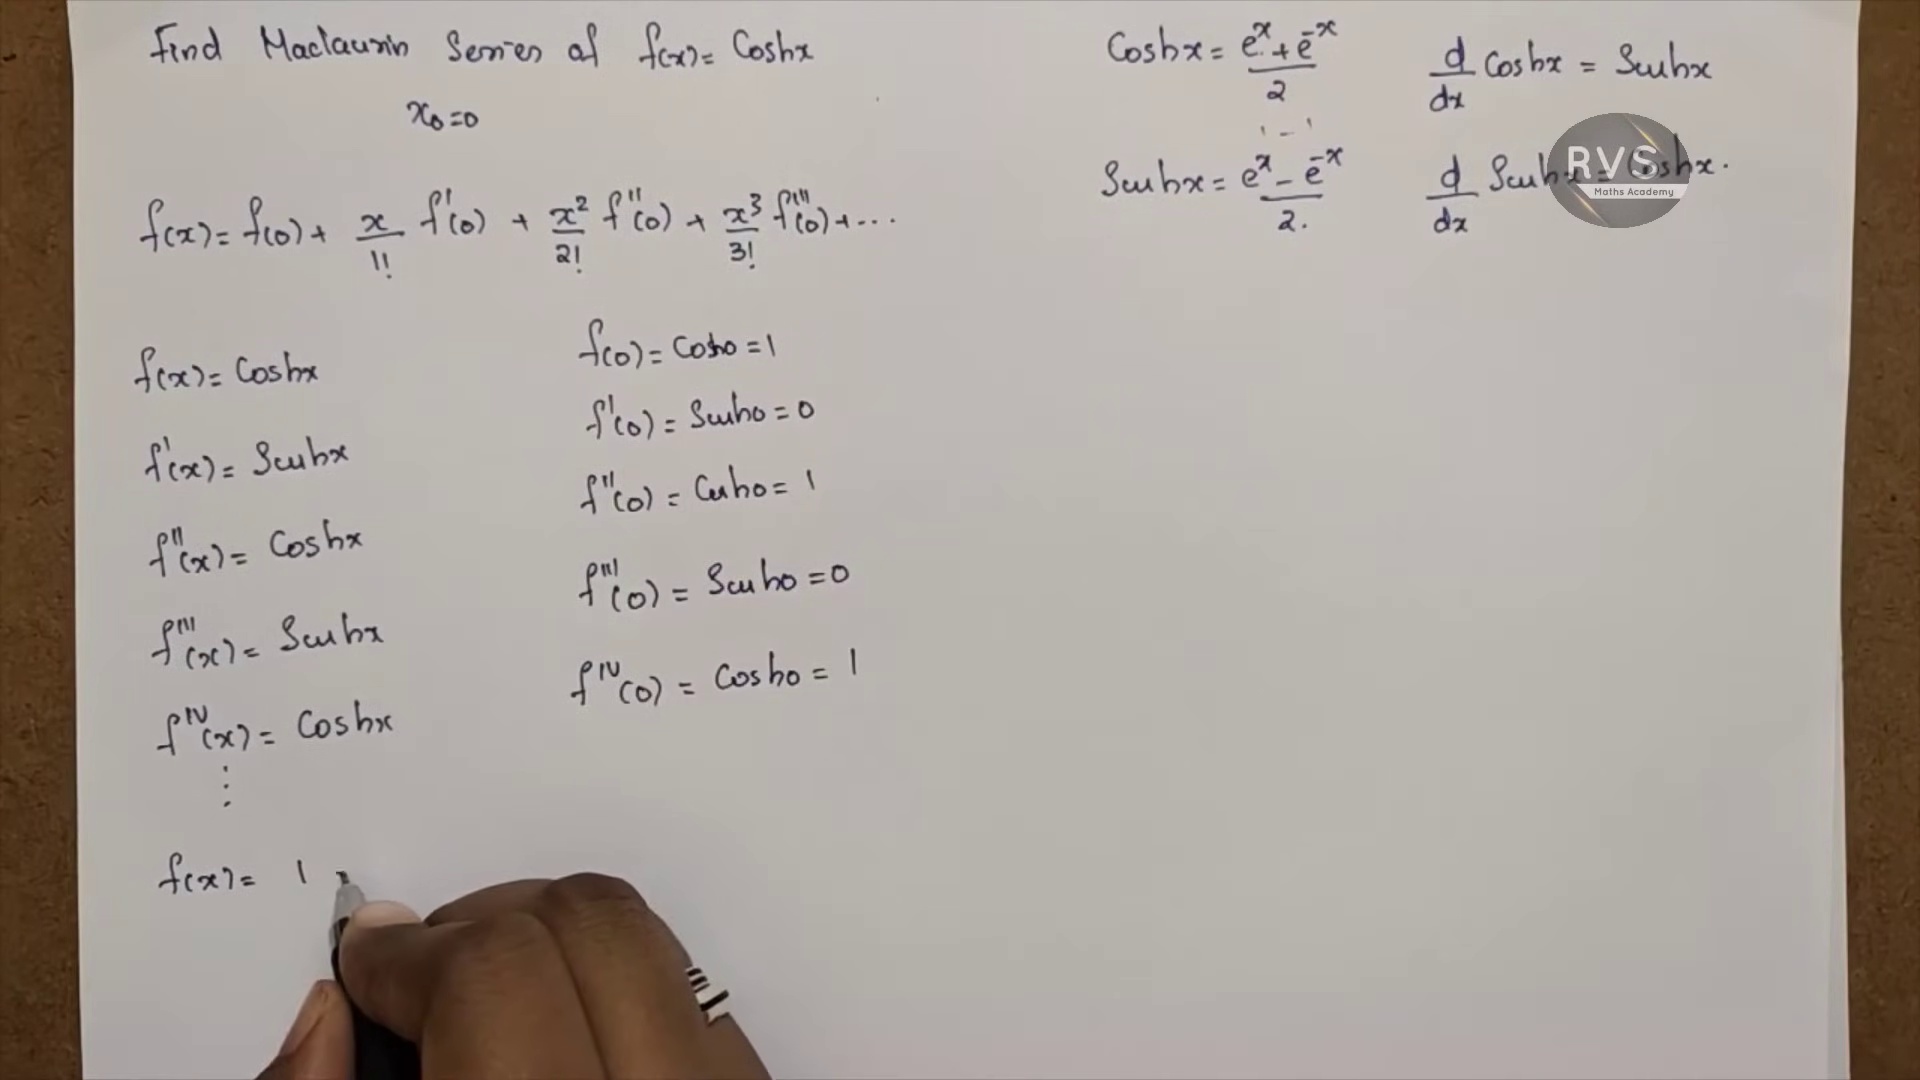 Find Maclaurin Series of f(x) = Coshx
x₀ = 0
f(x) = f(0) + x/1! f'(0) + x²/2! f''(0) + x³/3! f'''(0) + ...
f(x) = Coshx
f'(x) = Sinhx
f''(x) = Coshx
f'''(x) = Sinhx
f^IV(x) = Coshx
⋮
f(x) = 1
f(0) = Cosh0 = 1
f'(0) = Sinh0 = 0
f''(0) = Cosh0 = 1
f'''(0) = Sinh0 = 0
f^IV(0) = Cosh0 = 1
Coshx = (e^x + e^-x)/2
1 - 1
Sinhx = (e^x - e^-x)/2.
d/dx Coshx = Sinhx
d/dx Sinhx = Coshx.
RVS
Maths Academy